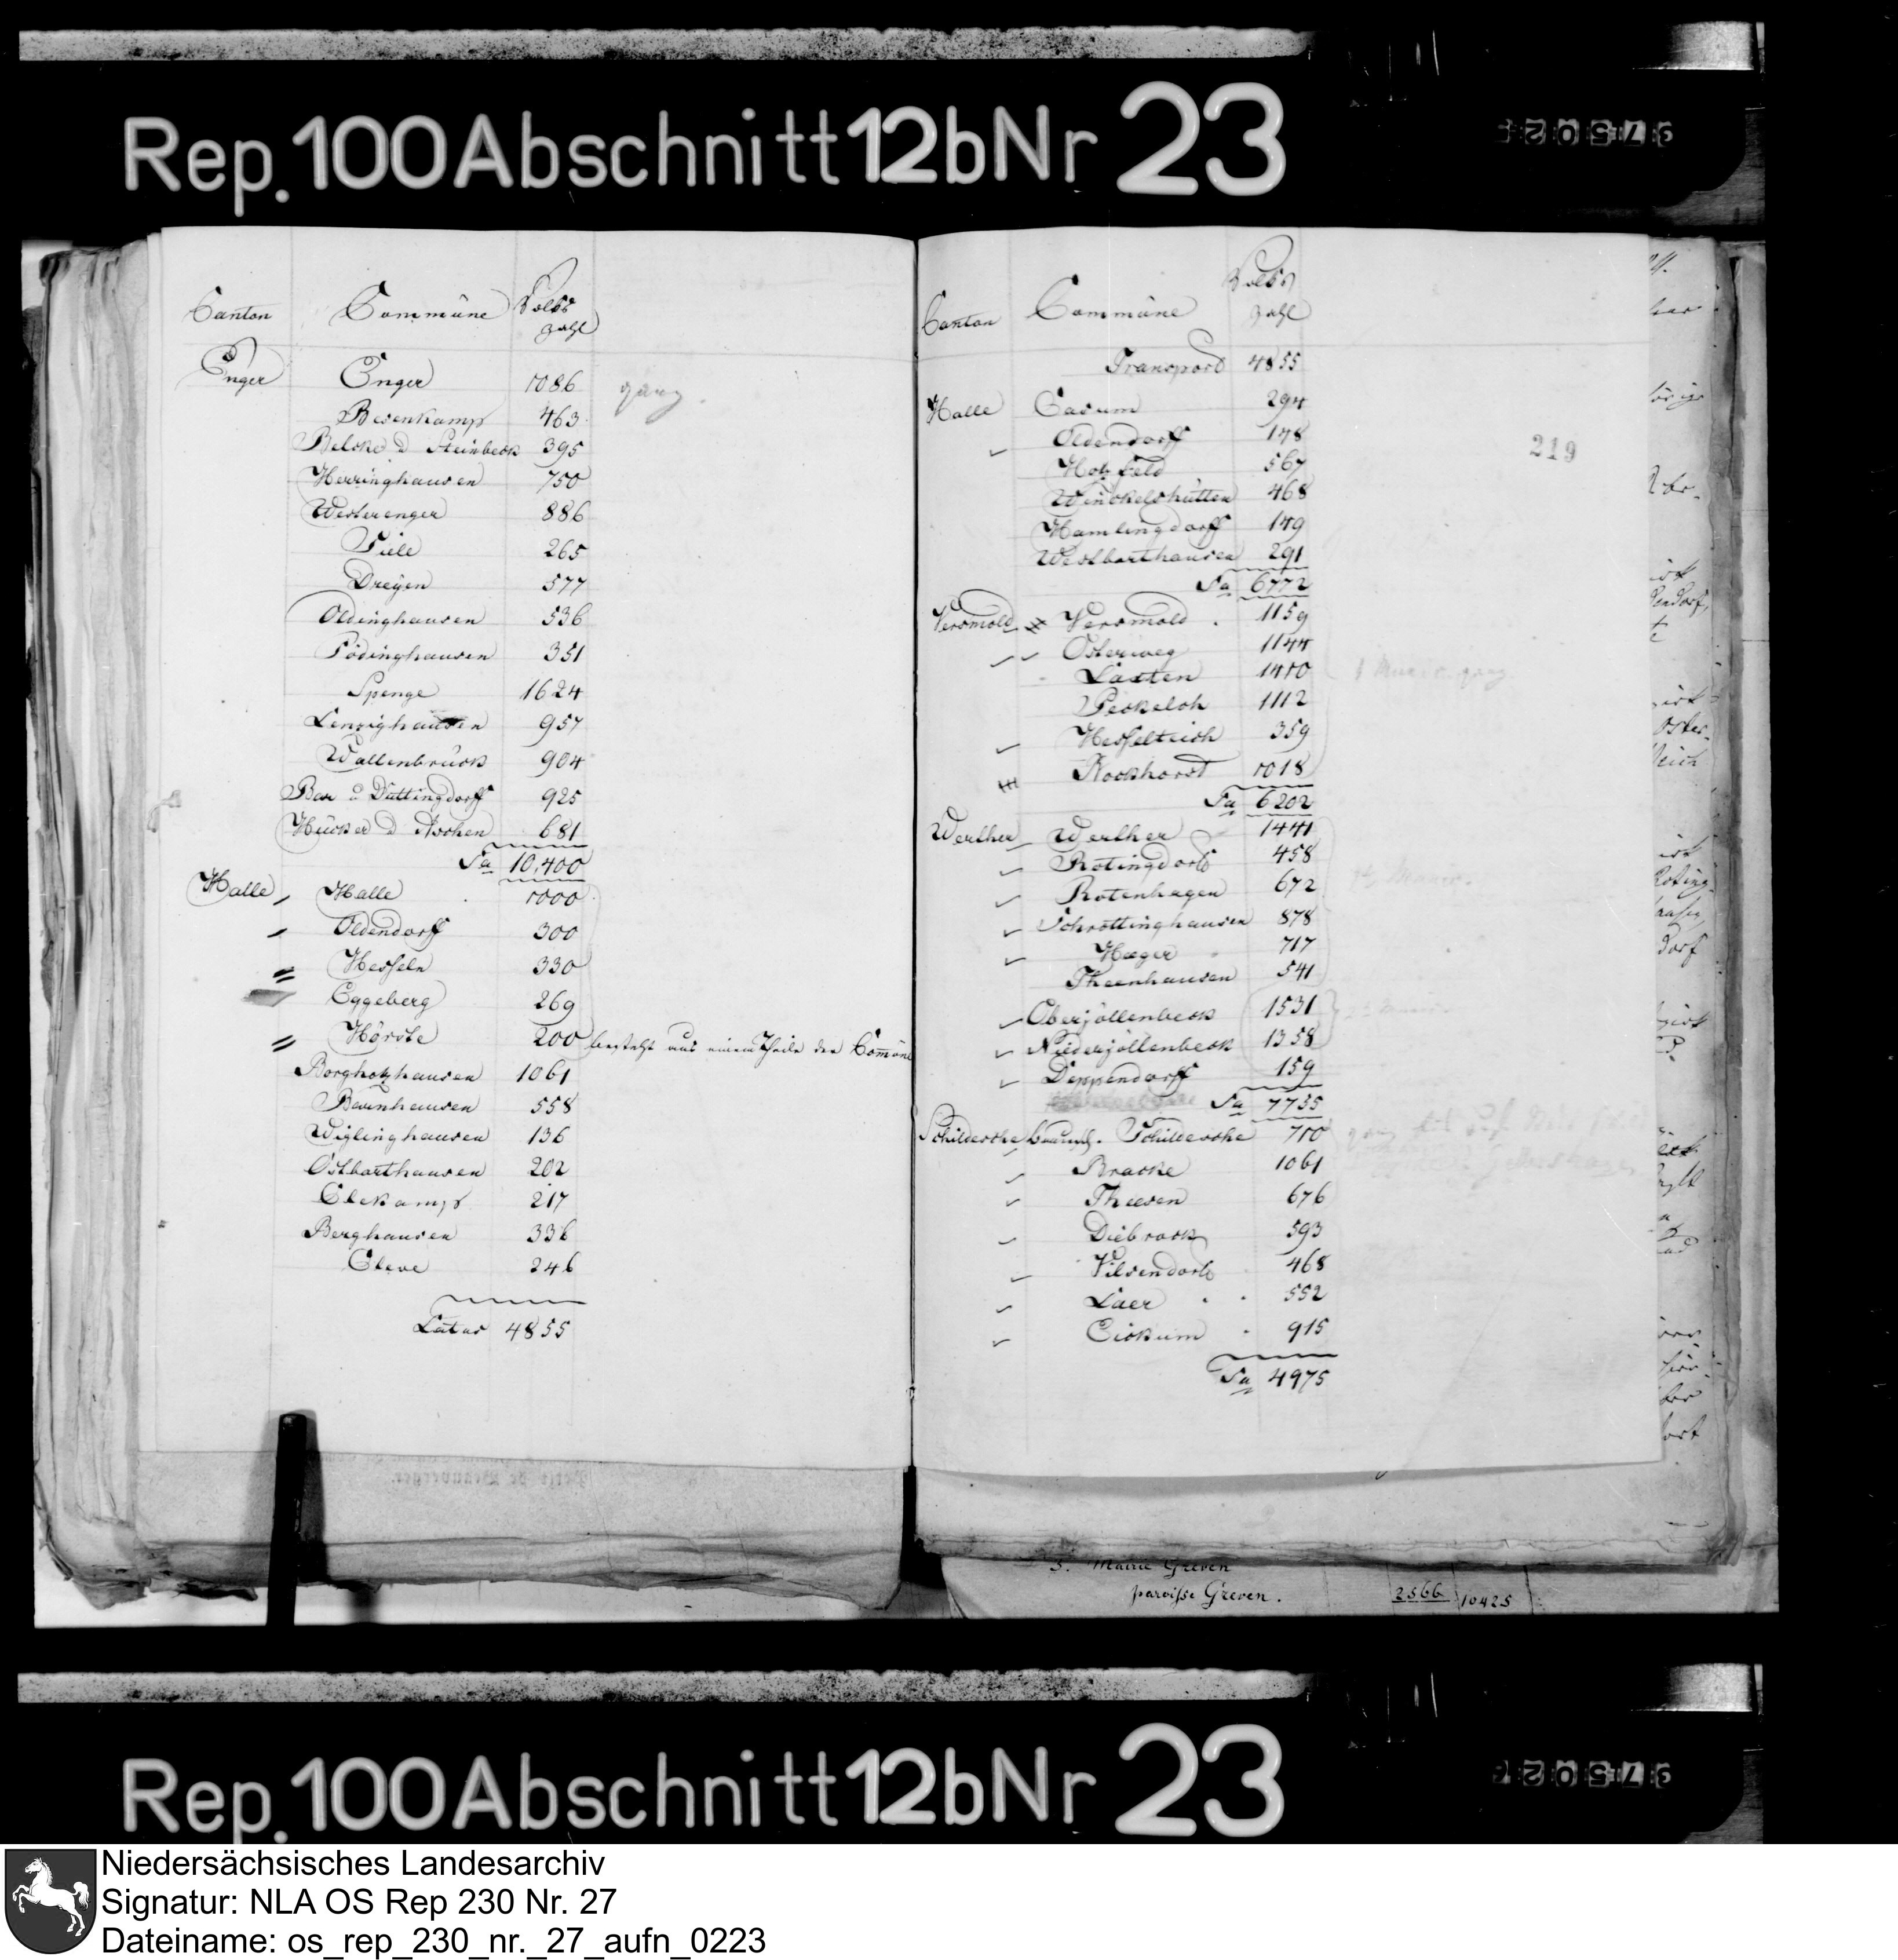 Rep. 100 Abschnitt 12b Nr 23
Canton Commüne Volks
zahl
Enger Enger 1086 ganz
Besenkamp 463
Belcke d Steinbeck 395
Herringhausen 750
Westerenger 886
Siele 265
Dreyen 577
Oldinghausen 536
Pödinghausen 351
Spenge 1624
Lenzighausen 957
Wallenbrück 904
Bar d Düttingdorff 925
Hücker d Aschen 681
Sa 10,400
Halle Halle 1000
Oldendorff 300
Hesseln 330
Eggeberg 269
Hörste 200 besteht aus einem Theile der Commüne
Borgholzhausen 1061
Barnhausen 558
Wiglinghausen 136
Ostbarthausen 202
Clekamp 217
Berghausen 336
Cleve 246
Latus 4855
Canton Commüne Volks
zahl
219
Transport 4855
Halle Casum 294
Oldendorff 148
Holzfeld 567
Winckelshütten 468
Hamlingdorff 149
Westbarthausen 291
Sa 6772
Versmold Versmold 1159
Osterweg 1144
Laxten 1410
Peckeloh 1112
Hesselteich 359
Bockhorst 1018
Sa 6202
Werther Werther 1441
Rotingdorf 458
Rotenhagen 672
Schrottinghausen 878
Haeger 717
Theenhausen 541
Oberjöllenbeck 1531
Niederjöllenbeck 1358
Deppendorff 159
Sa 7755
Schildesche Schildesche 710
Bracke 1061
Theesen 676
Diebrock 593
Vilsendorf 468
Laer 552
Eickum 915
Sa 4975
3. Mairie Greven
paroisse Greven. 2566 10425
Rep. 100 Abschnitt 12b Nr 23
Niedersächsisches Landesarchiv
Signatur: NLA OS Rep 230 Nr. 27
Dateiname: os_rep_230_nr._27_aufn_0223